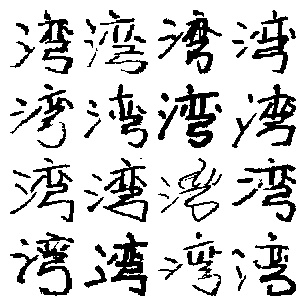 湾湾湾湾
湾湾湾湾
湾湾湾湾
湾湾湾湾